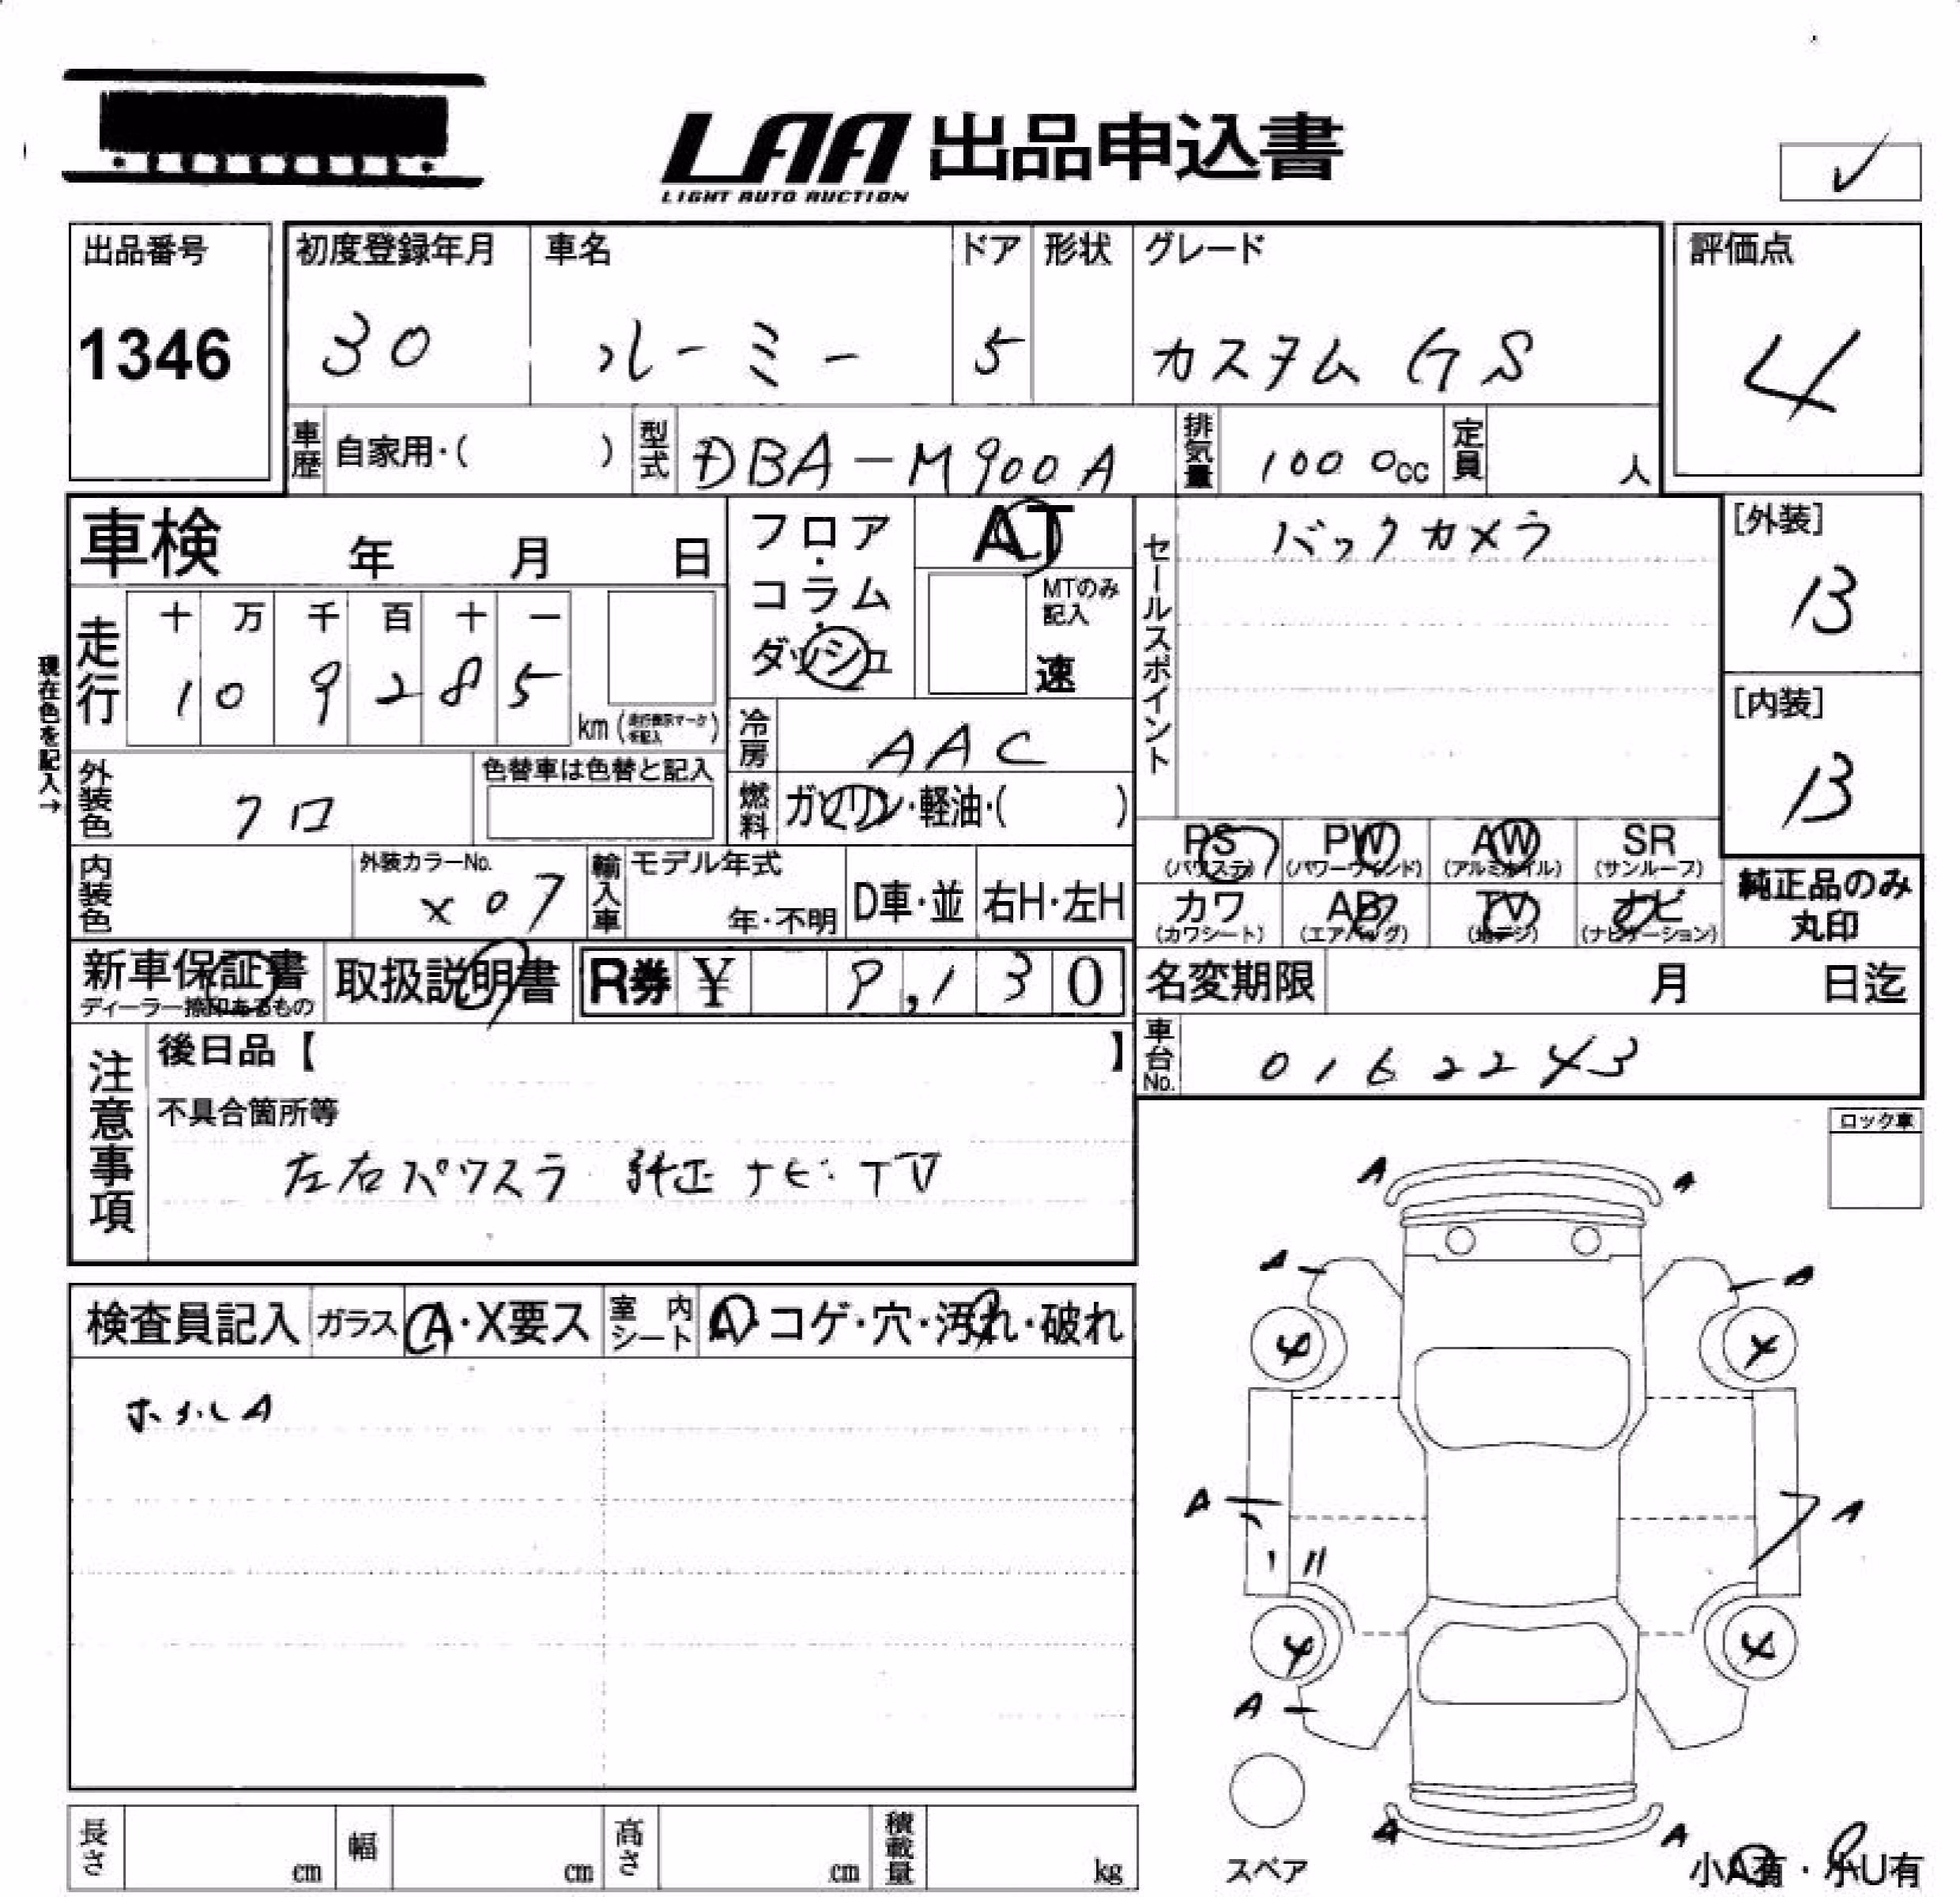 LAA 出品申込書
LIGHT AUTO AUCTION
✓
出品番号 初度登録年月 車名 ドア 形状 グレード 評価点
1346 30 ルーミー 5 カスタム GS 4
車歴 自家用・( ) 型式 DBA-M900A 排気量 1000cc 定員 人
車検 年 月 日
フロア・コラム・ダッシュ
AT
MTのみ記入
速
セールスポイント
バックカメラ
[外装]
B
[内装]
B
現在色を記入→
走行 十 万 千 百 十 一
1 0 9 2 8 5
km
冷房 AAC
外装色 クロ
色替車は色替と記入
燃料 ガソリン・軽油・( )
内装色
外装カラーNo.
X07
輸入車 モデル年式
年・不明
D車・並 右H・左H
PS PW AW SR
(パワステ) (パワーウィンド) (アルミホイル) (サンルーフ)
カワ AB TV ナビ
(カワシート) (エアバッグ) (地デジ) (ナビゲーション)
純正品のみ
丸印
新車保証書
ディーラー捺印あるもの
取扱説明書
R券 ¥ 9,130
名変期限 月 日迄
車台No. 0162243
注意事項
後日品【 】
不具合箇所等
左右パワスラ 純正ナビ・TV
ロック車
検査員記入 ガラス A・X要ス 室内シート A・コゲ・穴・汚れ・破れ
ホイルA
A A
A A
4 4
A A
4 4
A
A A
スペア
小A有・小U有
長さ cm 幅 cm 高さ cm 積載量 kg